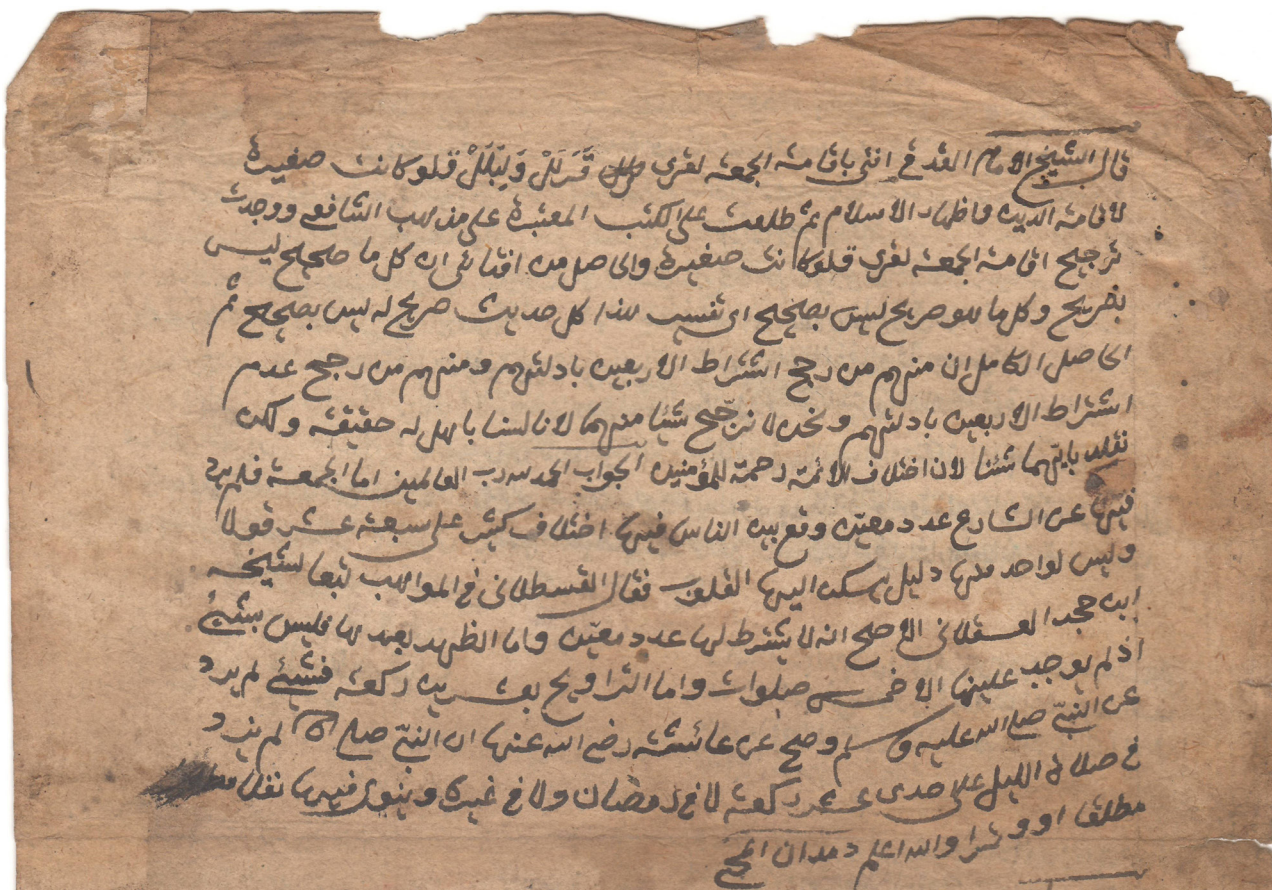 قال الشيخ الامام القدقي افتى باقامة الجمعة لقرى قَرَلَلْ وَلِبَلَلْ قلو كانت صغيرة
لاقامة الدين واظهار الاسلام ثم طلعت على الكتب المعتبرة على مذهب الشافعي ووجدت
ترجيح اقامة الجمعة لقرى قلو كانت صغيرة والحاصل من افتائى ان كل ما صحيح ليس
بصريح وكل ما هو صريح ليس بصحيح اى نفسب لهذا كل حديث صريح له ليس بصحيح ثم
الحاصل الكامل ان منهم من رجح اشتراط الاربعين بادلتهم ومنهم من رجح عدم
اشتراط الاربعين بادلتهم ونحن لا نرجّح شئا منهما لانا لسنا باهل له حقيقة ولكن
نقلد بايّهما شئنا لان اختلاف الائمة رحمة للمؤمنين الجواب الحمد لله رب العالمين اما الجمعة فلم يرد
فيها عن الشارع عدد معيّن وقع بين الناس فيها اختلاف كثير على سبعة عشر قولا
وليس لواحد منها دليل يسكن اليها القلوب فقال القسطلانى فى المواهب تبعا لشيخه
ابن حجر العسقلانى الاصح انه لا يشترط لها عدد معيّن واما الظهر بعدها فليس بشيئ
اذ لم يوجب علينا الا خمس صلوات واما التراويح بعشرين ركعة فشيئ لم يرد
عن النبىّ صلى الله عليه وسلم وصح عن عائشة رضى الله عنها ان النبىّ صلى الله لم يزد
فى صلاة الليل على احدى عشر ركعة لا فى رمضان ولا فى غيره وينوى فيها نفلا
مطلقا او وترا والله اعلم